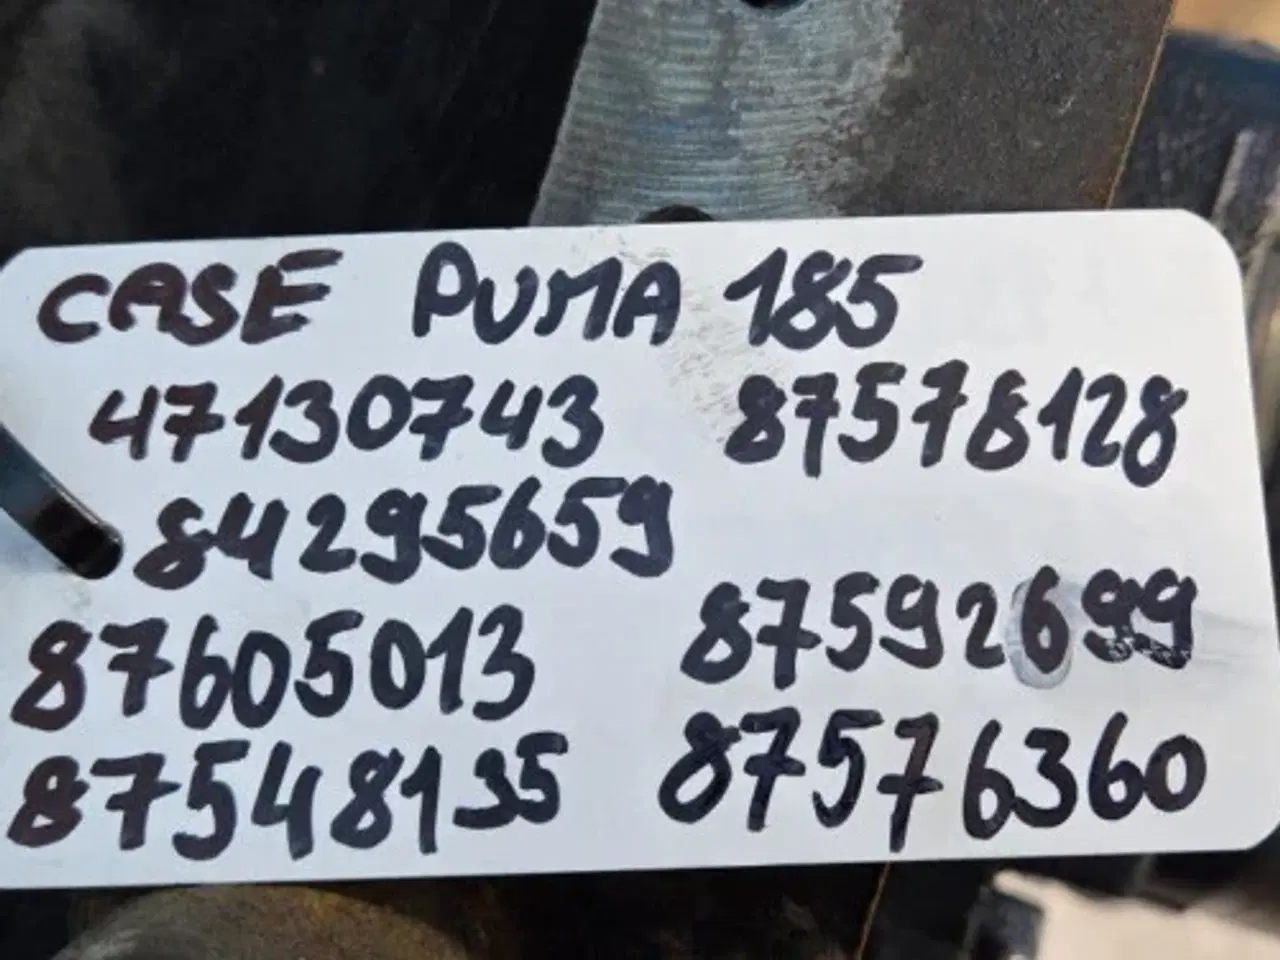 CASE PUMA 185
47130743 87578128
84295659
87592699
87605013
87548135 87576360